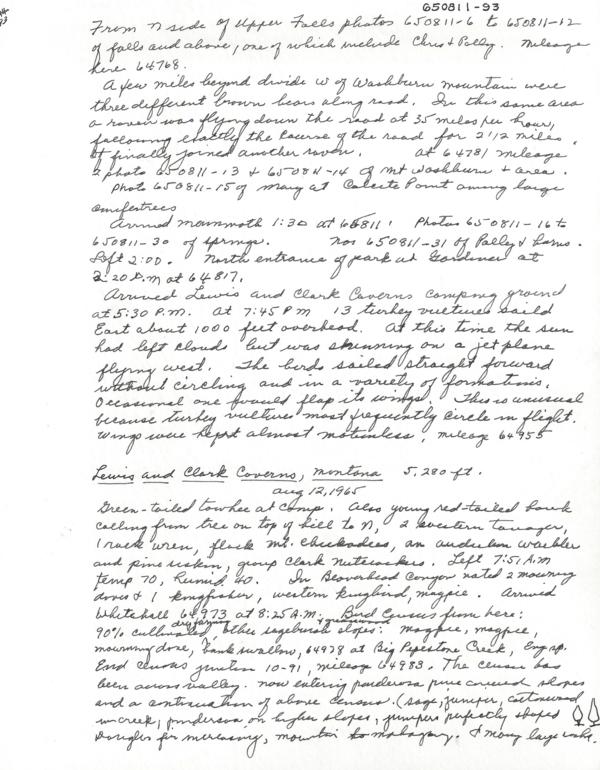 650811-93
From N side of Upper Falls photos 650811-6 to 650811-12
of falls and above, one of which include Chris & Polly. Mileage
here 64768.
A few miles beyond divide W of Washburn mountain were
three different brown bears along road. In this same area
a raven was flying down the road at 35 miles per hour,
following exactly the course of the road for 2 1/2 miles.
It finally joined another raven. at 64781 mileage
2 photo 650811-13 & 650811-14 of Mt Washburn & area.
Photo 650811-15 of Mary at Calcite Point among large
conifertrees
Arrived mammoth 1:30 at 64811. Photos 650811-16 to
650811-30 of springs. Nos 650811-31 of Polly &
Left 2:00. North entrance of park at Gardiner at
2:20 P.M at 64817.
Arrived Lewis and Clark Caverns camping ground
at 5:30 P.M. At 7:45 PM 13 turkey vultures sailed
East about 1000 feet overhead. At this time the sun
had left clouds but was shinning on a jet plane
flying west. The birds sailed straight forward
without circling and in a variety of formations.
Occasional one would flap its wings. This is unusual
because turkey vultures most frequently circle in flight.
Wings were kept almost motionless, mileage 64955
Lewis and Clark Caverns, Montana 5,280 ft.
Aug 12, 1965
Green-tailed towhee at camp. Also young red-tailed hawk
calling from tree on top of hill to N, 2 western tanager,
1 rock wren, flock Mt. Chickadees, an audubon warbler
and pine siskin, group Clark Nutcrackers. Left 7:51 A.M
temp 70, Humid, 40. In Beaverhead Canyon noted 2 mourning
doves & 1 kingfisher, western kingbird, magpie. Arrived
Whitehall 64973 at 8:25 A.M. Bird Census from here:
dry farming
90% cultivated, other sagebrush slopes: magpie, magpie,
mourning dove, bank swallow, 64978 at Big Pipestone Creek,
End census junction 10-91, mileage 64983. The census has
been across valley. now entering ponderosa pine covered slopes
and a continuation of above census. (sage, juniper, cottonwood
in creek, ponderosa on higher slopes, junipers perfectly shaped
Douglas fir increasing, mountain mahogany. & many large rocks.